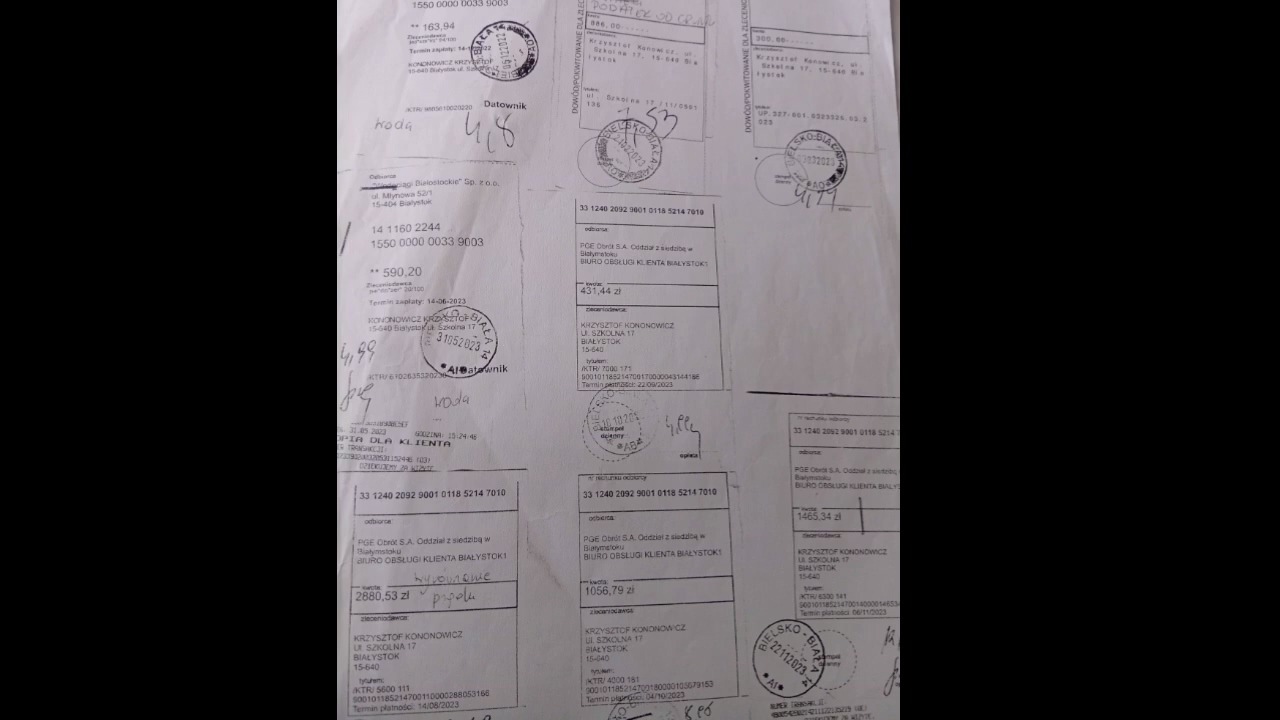 1550 0000 0033 9003
** 163,94
Zleceniodawca
Termin zapłaty: 14-1
KONONOWICZ KRZYSZTOF
15-640 Białystok ul. Szkolna 17
Datownik
woda
4,8
DODATEK OD
886,00------
Krzysztof Konowicz, ul.
Szkolna 17, 15-640 Bia
łystok
ul. Szkolna 17 /11/0501
136
DOWÓD/POKWITOWANIE DLA ZLECENIO
BIELSKO-BIAŁA
300,00------
Krzysztof Konowicz, ul.
Szkolna 17, 15-640 Bia
łystok
DOWÓD/POKWITOWANIE DLA ZLECENIO
BIELSKO-BIAŁA
opłata
Odbiorca
Białostockie" Sp. z o.o.
ul. Młynowa 52/1
15-404 Białystok
14 1160 2244
1550 0000 0033 9003
** 590,20
Zleceniodawca
Termin zapłaty: 14-06-2023
KONONOWICZ KRZYSZTOF
15-640 Białystok ul. Szkolna 17
31052023
4,99
Datownik
woda
31.05.2023 GODZINA: 15:24:46
OPIA DLA KLIENTA
33 1240 2092 9001 0118 5214 7010
odbiorca:
PGE Obrót S.A. Oddział z siedzibą w
Białymstoku
BIURO OBSŁUGI KLIENTA BIAŁYSTOK1
kwota:
431,44 zł
zleceniodawca:
KRZYSZTOF KONONOWICZ
UL. SZKOLNA 17
BIAŁYSTOK
15-640
tytułem:
/KTR/ 7000 171
Termin płatności: 22/09/2023
stempel
dzienny
opłata
33 1240 2092 9001 0118 5214 7010
odbiorca:
PGE Obrót S.A. Oddział z siedzibą w
Białymstoku
BIURO OBSŁUGI KLIENTA BIAŁYSTOK1
kwota:
2880,53 zł
zleceniodawca:
KRZYSZTOF KONONOWICZ
UL. SZKOLNA 17
BIAŁYSTOK
15-640
tytułem:
/KTR/ 5600 111
Termin płatności: 14/08/2023
nr rachunku odbiorcy
33 1240 2092 9001 0118 5214 7010
odbiorca:
PGE Obrót S.A. Oddział z siedzibą w
Białymstoku
BIURO OBSŁUGI KLIENTA BIAŁYSTOK1
kwota:
1056,79 zł
zleceniodawca:
KRZYSZTOF KONONOWICZ
UL. SZKOLNA 17
BIAŁYSTOK
15-640
tytułem:
/KTR/ 4000 181
Termin płatności: 04/10/2023
nr rachunku odbiorcy
33 1240 2092 9001 0118 5214
odbiorca:
PGE Obrót S.A. Oddział z siedzibą
Białymstoku
BIURO OBSŁUGI KLIENTA BIAŁYS
kwota:
1465,34 zł
zleceniodawca:
KRZYSZTOF KONONOWICZ
UL. SZKOLNA 17
BIAŁYSTOK
15-640
tytułem:
/KTR/ 6300 141
Termin płatności: 06/11/2023
BIELSKO-BIAŁA 14
22112023
stempel
dzienny